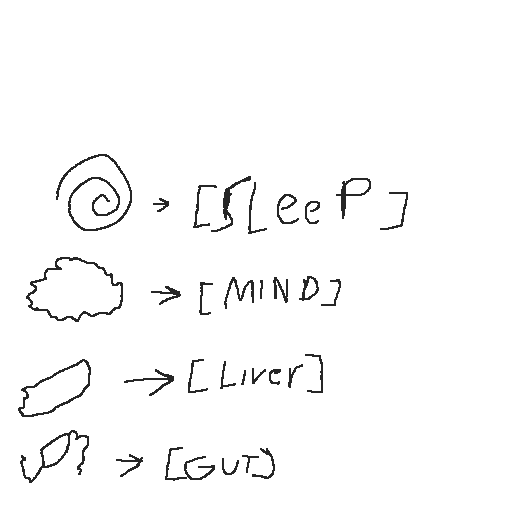 [SLeeP]
[MIND]
[Liver]
[GUT)